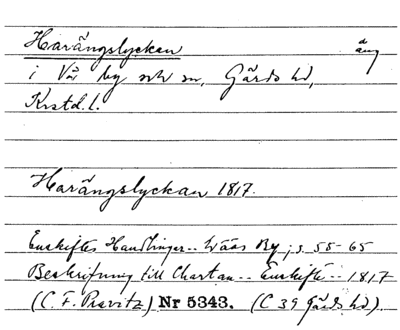 Harängslyckan å äng
i Vä by och sn, Gärds hd,
Krstd. l.
Harängslyckan 1817.
Enskiftes Handlingar -- Wääs By; s 55-65
Beskrifning till Chartan -- Enskifte -- 1817
(C. F. Pravitz) Nr 5343. (C 39 Gärds hd).